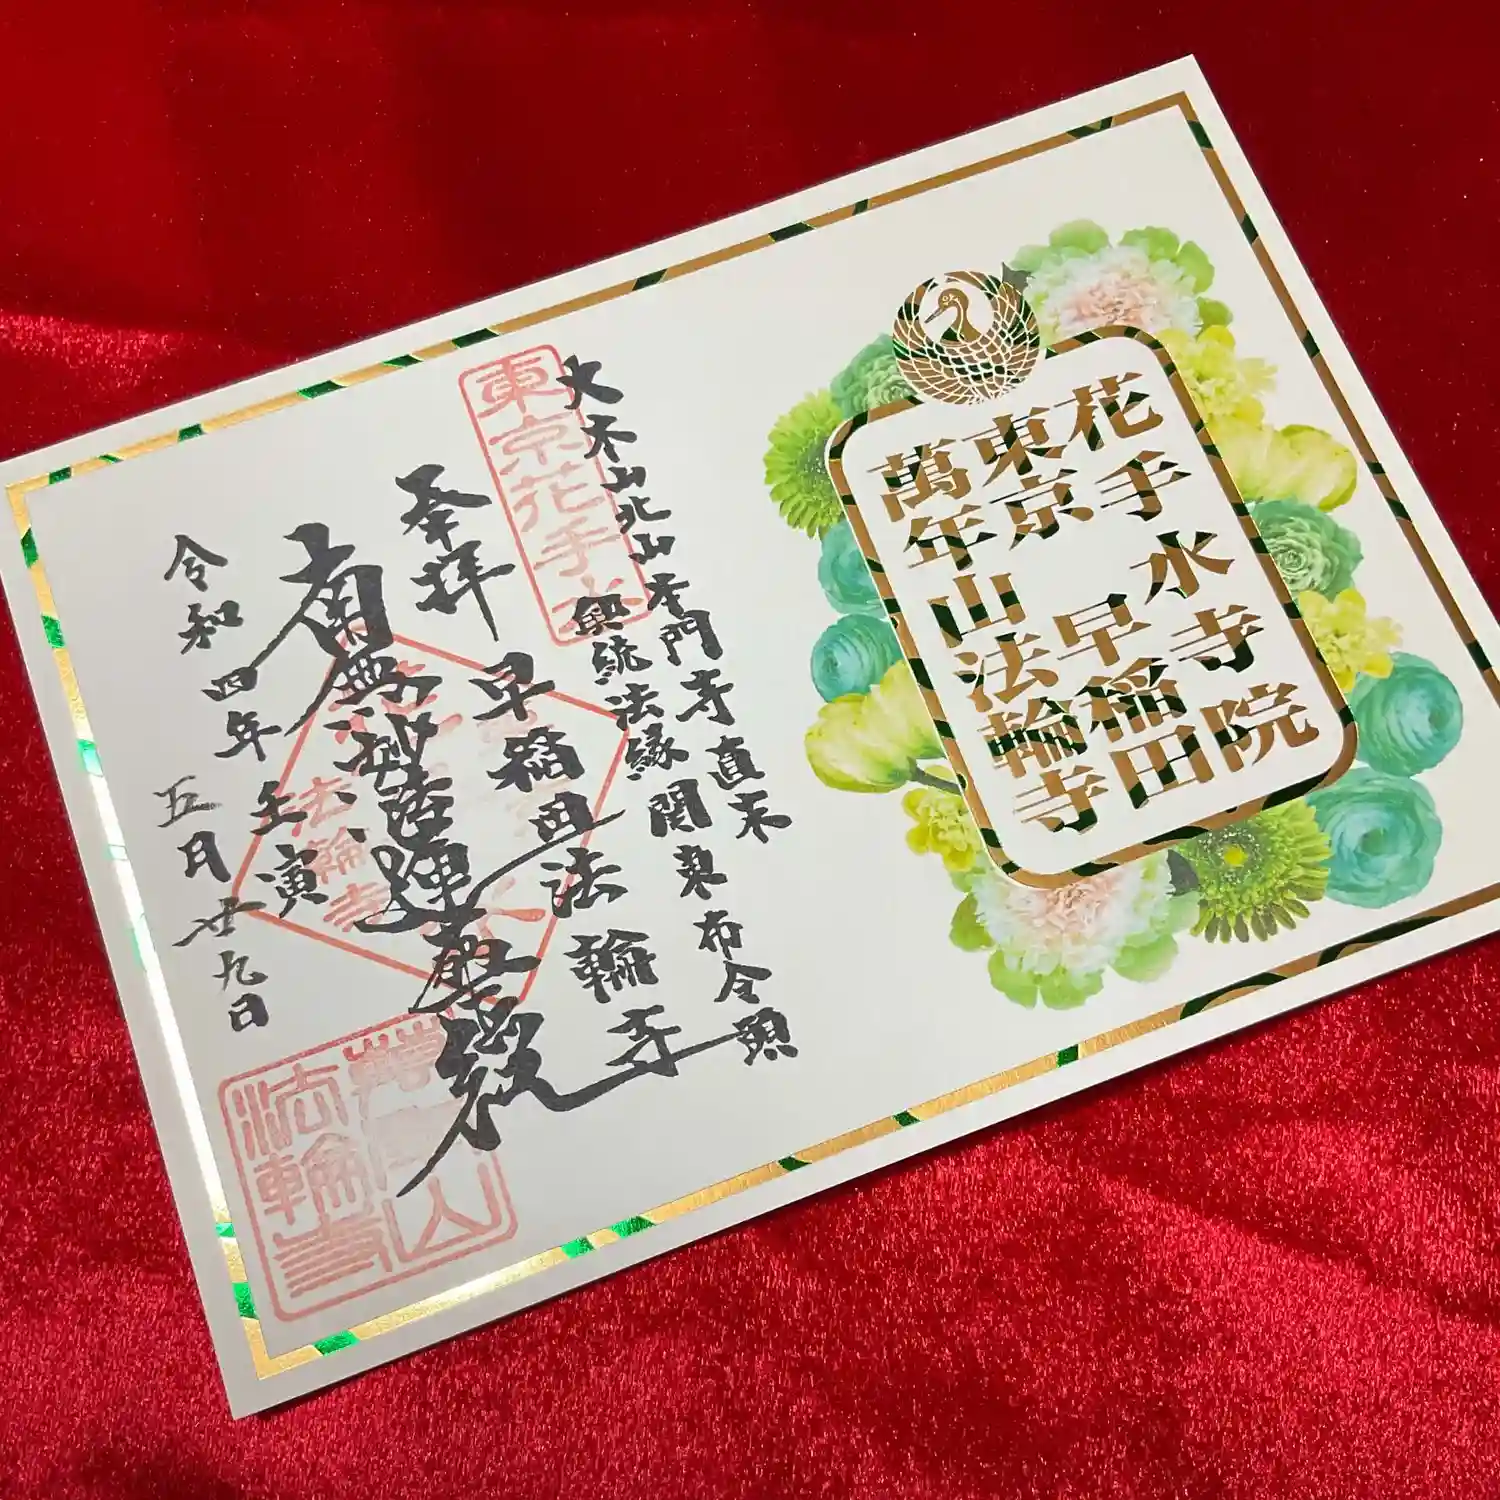 花手水寺院
東京早稲田
萬年山法輪寺
大本山北山本門寺直末
興統法縁関東布令頭
東京花手水
奉拝
早稲田法輪寺
南無妙法蓮華経
令和四年壬寅
五月廿九日
法輪寺
萬年山
法輪寺